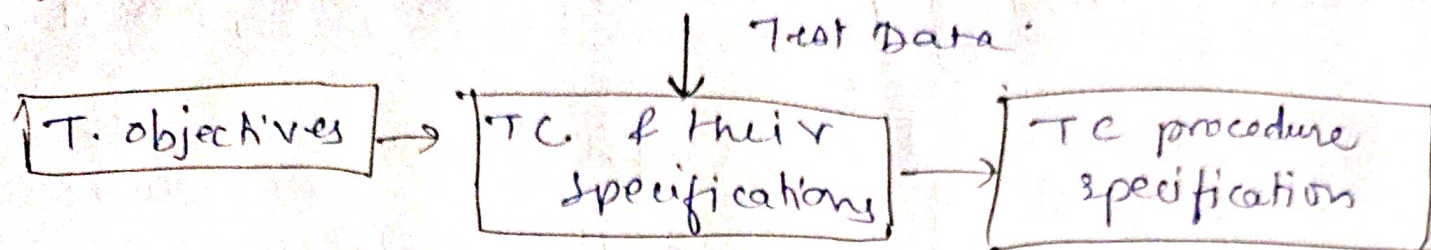 Test Data.
T. objectives
TC. & their
specifications
TC procedure
specification